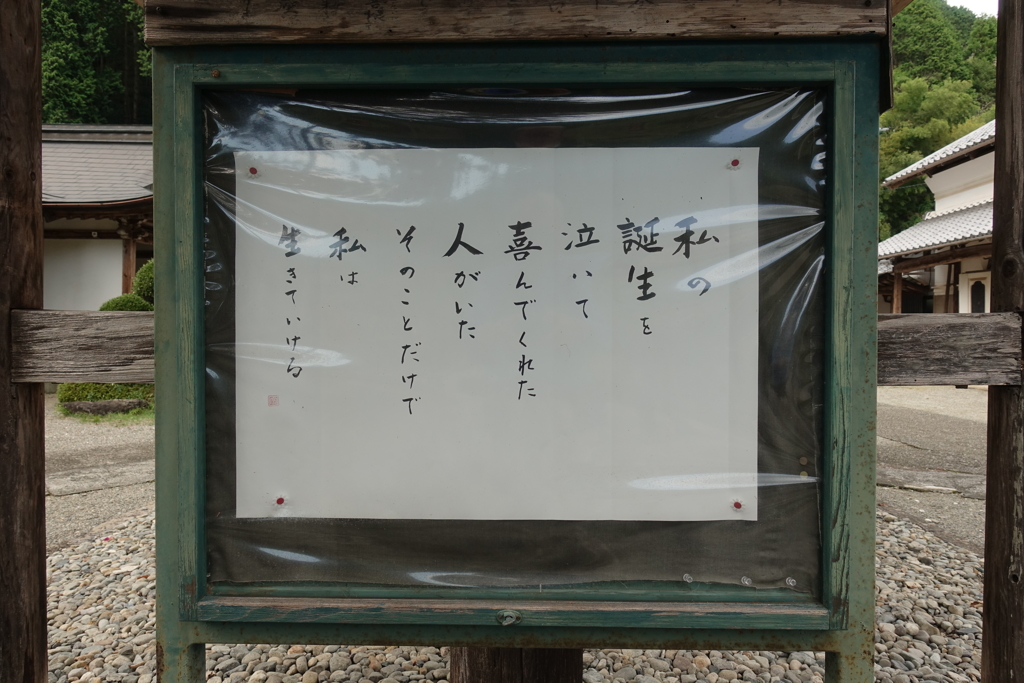 私の
誕生を
泣いて
喜んでくれた
人がいた
そのことだけで
私は
生きていける